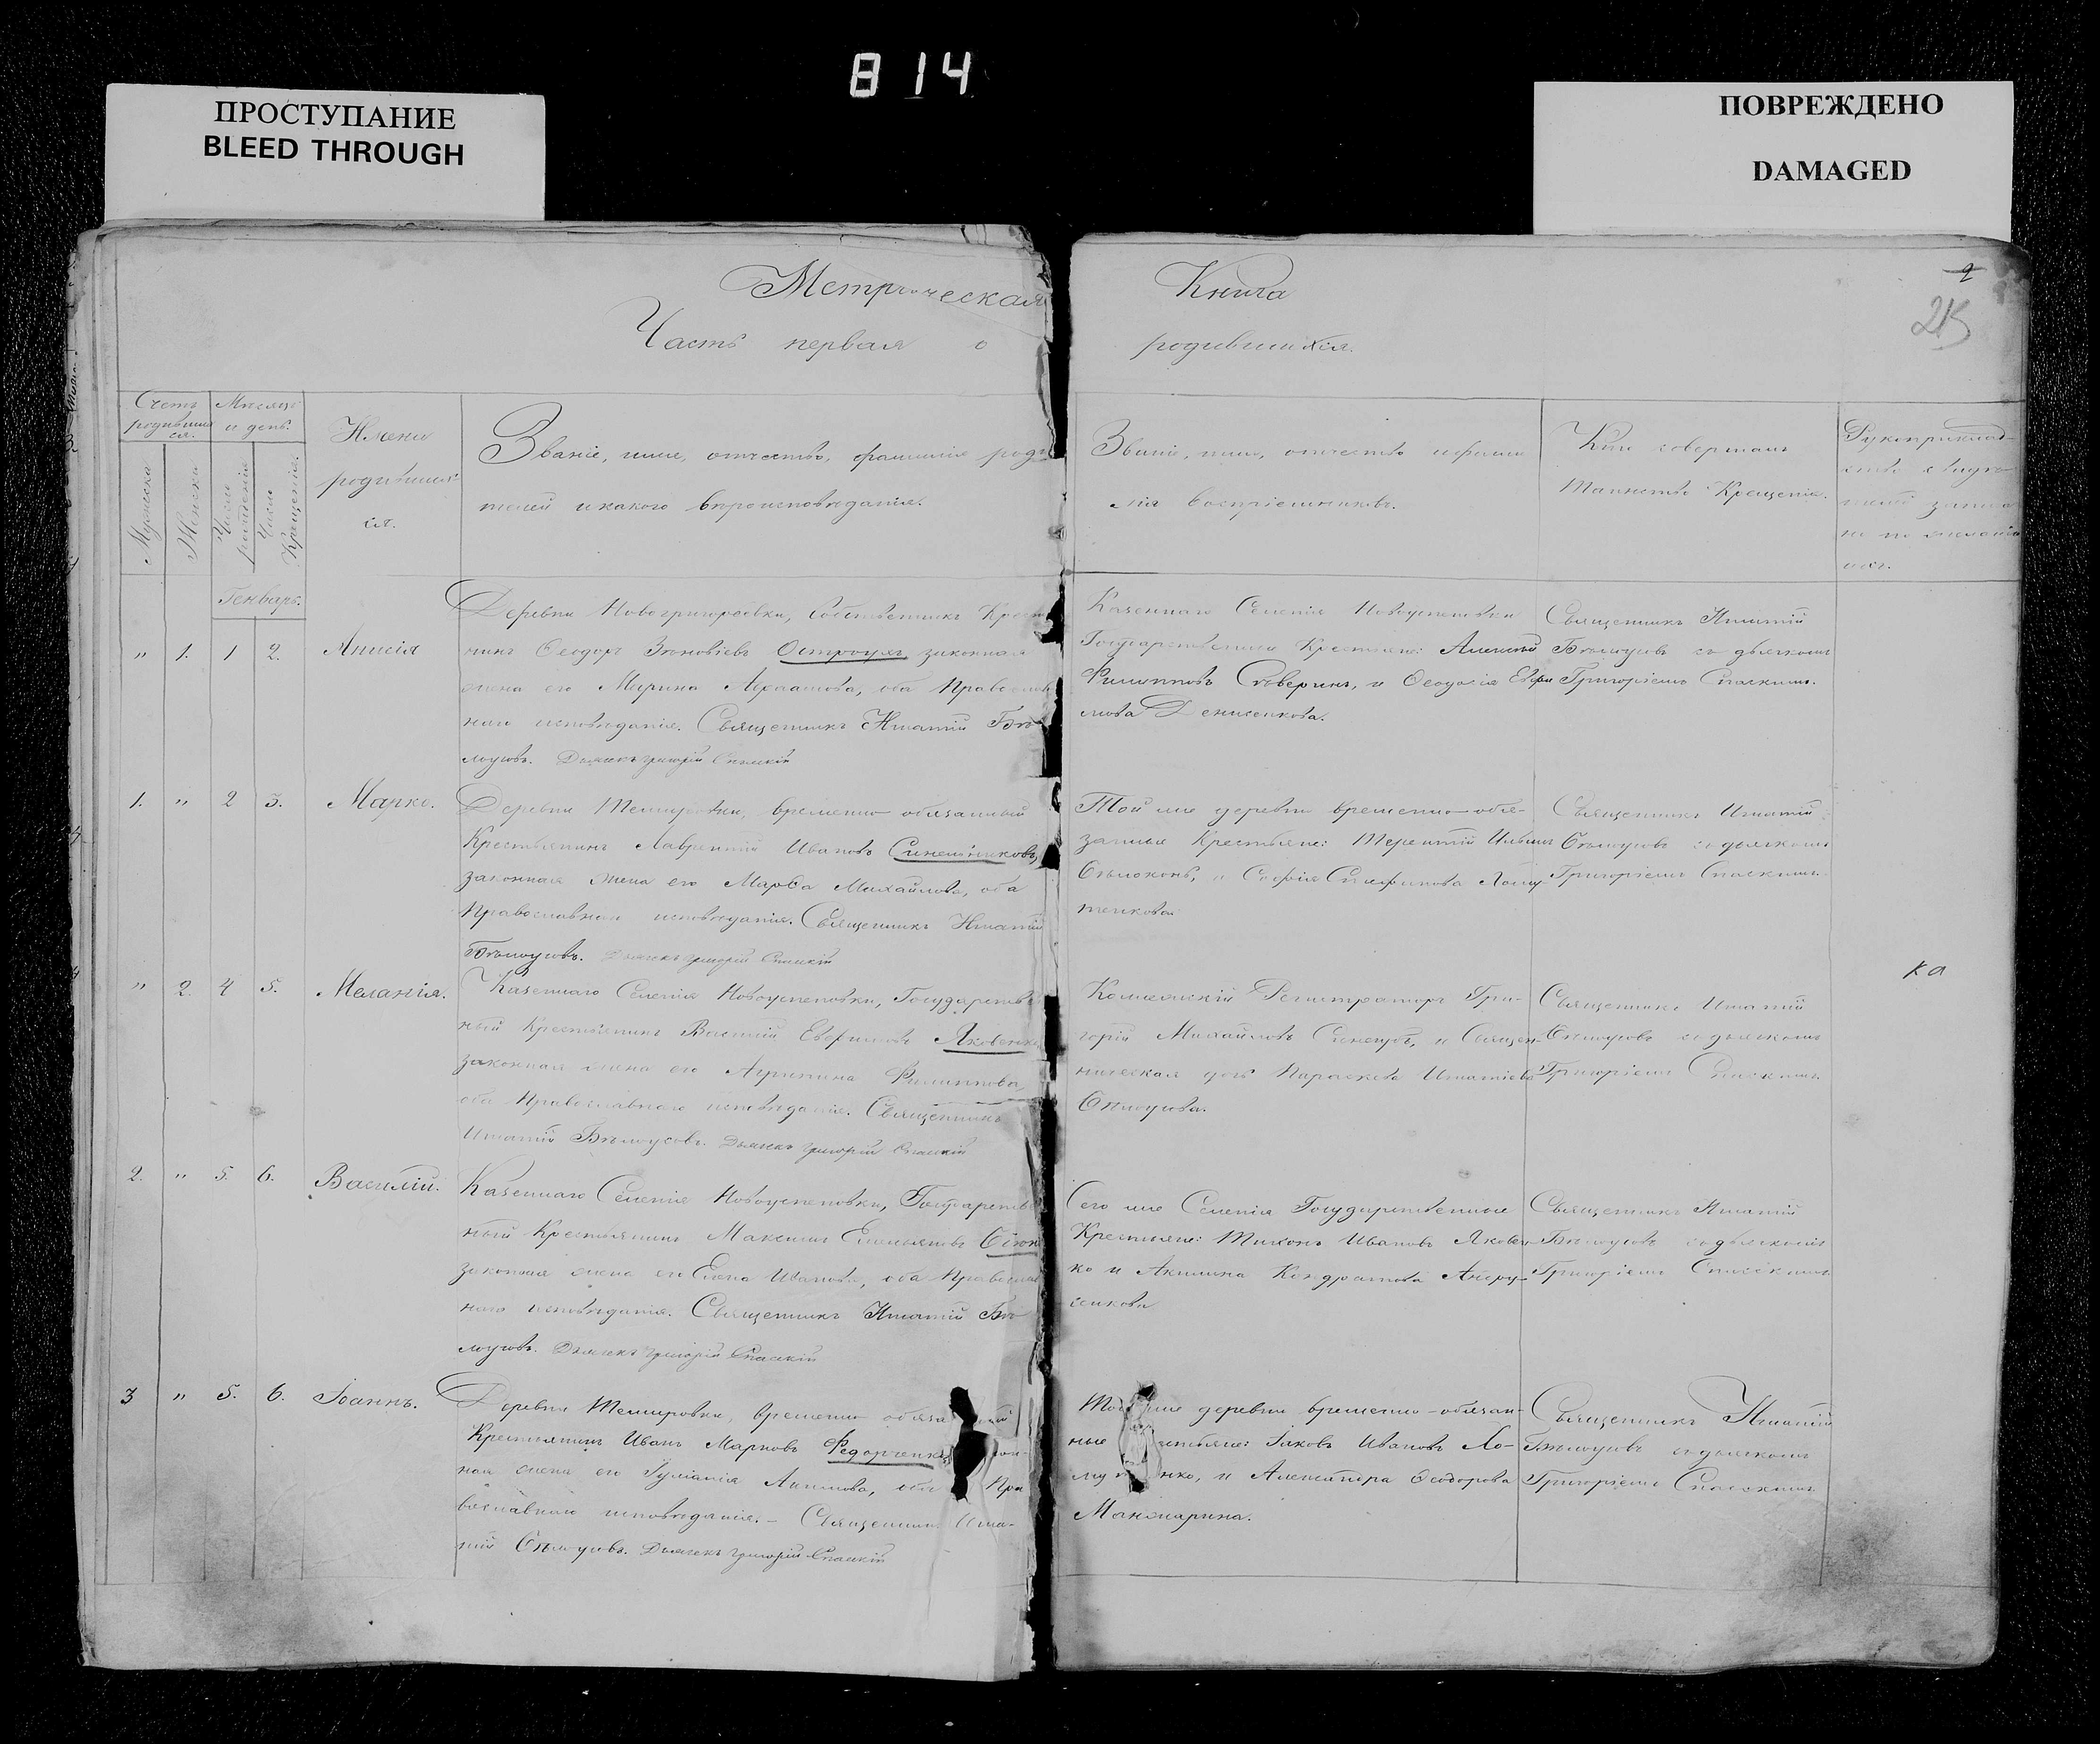 814
ПРОСТУПАНИЕ
BLEED THROUGH
ПОВРЕЖДЕНО
DAMAGED
Метрическая Книга
2
Часть первая о родившихся.
Счетъ родившихся.
Мѣсяцъ и день.
Мужеска
Женска
Число рожденія
Число Крещенія.
Имена
родивших
ся.
Званіе, имя, отчество, фамилія роди
телей и какого вѣроисповѣданія.
Званіе, имя, отчество и фами
лія воспріемниковъ.
Кто совершалъ
таинство Крещенія.
Рукоприклад-
ство свидѣ
телей записи
по желанію
Генварь.
" 1. 1 2. Анисія
Деревни Новогригоревки, Собственникъ Крест
нинъ Ѳеодоръ Зѣновіевъ Остроухъ законная
жена его Марина Авраамова, оба Православ
наго исповѣданія. Священникъ Игнатій Бѣ
лоусовъ. Дьячекъ Григорій Спасскій
Казеннаго Селенія Новоуспеновки
Государственные Крестьяне: Алексѣй
Филипповъ Сѣверинъ, и Ѳеодосія Евфи
мова Денисенкова.
Священникъ Игнатій
Бѣлоусовъ съ дьячкомъ
Григоріемъ Спасскимъ.
1. " 2 3. Марко.
Деревни Темировки, временно обязанный
Крестьянинъ Лаврентій Ивановъ Синельниковъ,
законная жена его Марѳа Михайлова, оба
Православнаго исповѣданія. Священникъ Игнатій
Бѣлоусовъ. Дьячекъ Григорій Спасскій
Той же деревни временно-обя-
занные Крестьяне: Терентій Ильинъ
Бѣлоконь, и Софія Стефанова
тенкова
Священникъ Игнатій
Бѣлоусовъ съ дьячкомъ
Григоріемъ Спасскимъ.
" 2. 4 5. Меланія.
Казеннаго Селенія Новоуспеновки, Государствен
ный Крестьянинъ Василій Евфимовъ Яковенко
законная жена его Агрипина Филиппова
оба Православнаго исповѣданія. Священникъ
Игнатій Бѣлоусовъ. Дьячекъ Григорій Спасскій
Коллежскій Регистраторъ Гри-
горій Михайловъ и Священ-
ническая дочь Параскева Игнатіева
Бѣлоусова.
Священникъ Игнатій
Бѣлоусовъ съ дьячкомъ
Григоріемъ Спасскимъ.
ка
2. " 5. 6. Василій.
Казеннаго Селенія Новоуспеновки, Государствен
ный Крестьянинъ Максимъ Емельяновъ
законная жена его Елена Иванова, оба Православ
наго исповѣданія. Священникъ Игнатій Бѣ
лоусовъ. Дьячекъ Григорій Спасскій
Сего же Селенія Государственные
Крестьяне: Тихонъ Ивановъ Яковен-
ко и Акилина Кондратова Андру-
сенкова
Священникъ Игнатій
Бѣлоусовъ съ дьячкомъ
Григоріемъ Спасскимъ
3 " 5. 6. Іоаннъ.
Деревни Темировки, временно обяза ный
Крестьянинъ Иванъ Марковъ Федорченко, кон-
ная жена его Іуліанія Акимова, оба Пра
вославнаго исповѣданія. - Священникъ Игна-
тій Бѣлоусовъ. Дьячекъ Григорій Спасскій
Той же деревни временно-обязан-
ные стьяне: Іаковъ Ивановъ Хо-
му нко, и Александра Ѳеодорова
Манжарина.
Священникъ Игнатій
Бѣлоусовъ съ дьячкомъ
Григоріемъ Спасскимъ